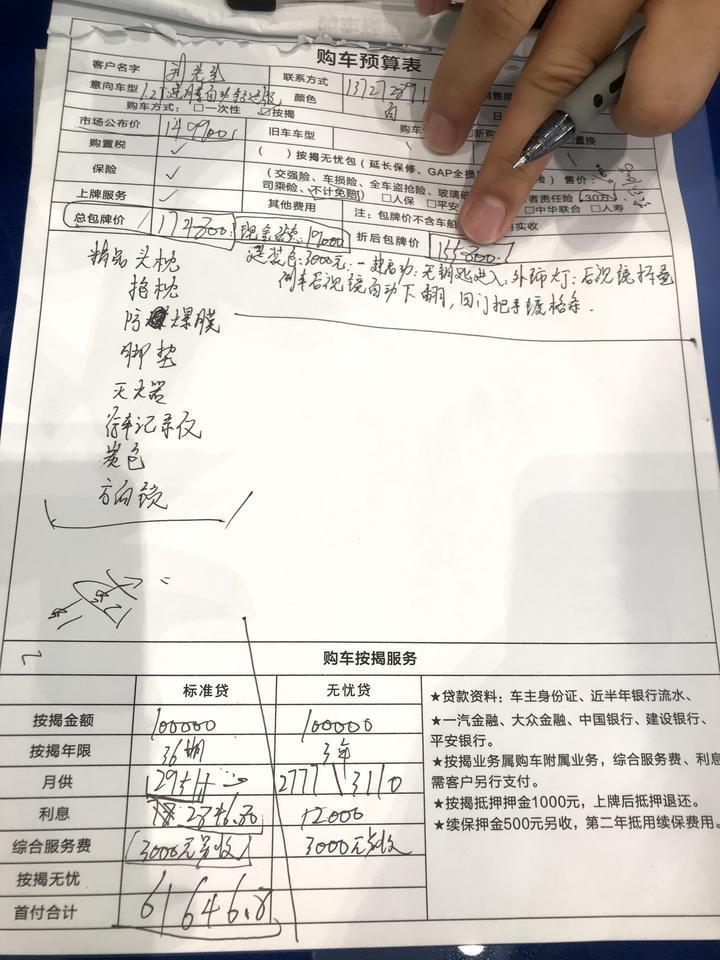 购车预算表
客户名字 联系方式
意向车型 颜色 白
购车方式: □一次性 ☑按揭
市场公布价 149900 旧车车型
购置税 ✓ ( )按揭无忧包(延长保修、GAP全损
保险 ✓ (交强险、车损险、全车盗抢险、玻璃破 售价:
司乘险、不计免赔) □人保 □平安 者责任险(30万)
上牌服务 ✓ 其他费用 □中华联合 □人寿
注: 包牌价不含车船 实收
总包牌价 174800 现金优惠: 19000 折后包牌价 155800
选装包: 3000元: 一键启动; 无钥匙进入, 外饰灯; 后视镜折叠
倒车后视镜自动下翻, 四门把手镀铬条.
精品 头枕
抱枕
防爆膜
脚垫
灭火器
行车记录仪
炭包
方向锁
购车按揭服务
标准贷 无忧贷
按揭金额 100000 100000
按揭年限 36期 3年
月供 2777 3110
利息 12000
综合服务费 3000元另收 3000元另收
按揭无忧
首付合计 61646.8
★贷款资料: 车主身份证、近半年银行流水、
★一汽金融、大众金融、中国银行、建设银行、
平安银行。
★按揭业务属购车附属业务, 综合服务费、利息
需客户另行支付。
★按揭抵押押金1000元, 上牌后抵押退还。
★续保押金500元另收, 第二年抵用续保费用。